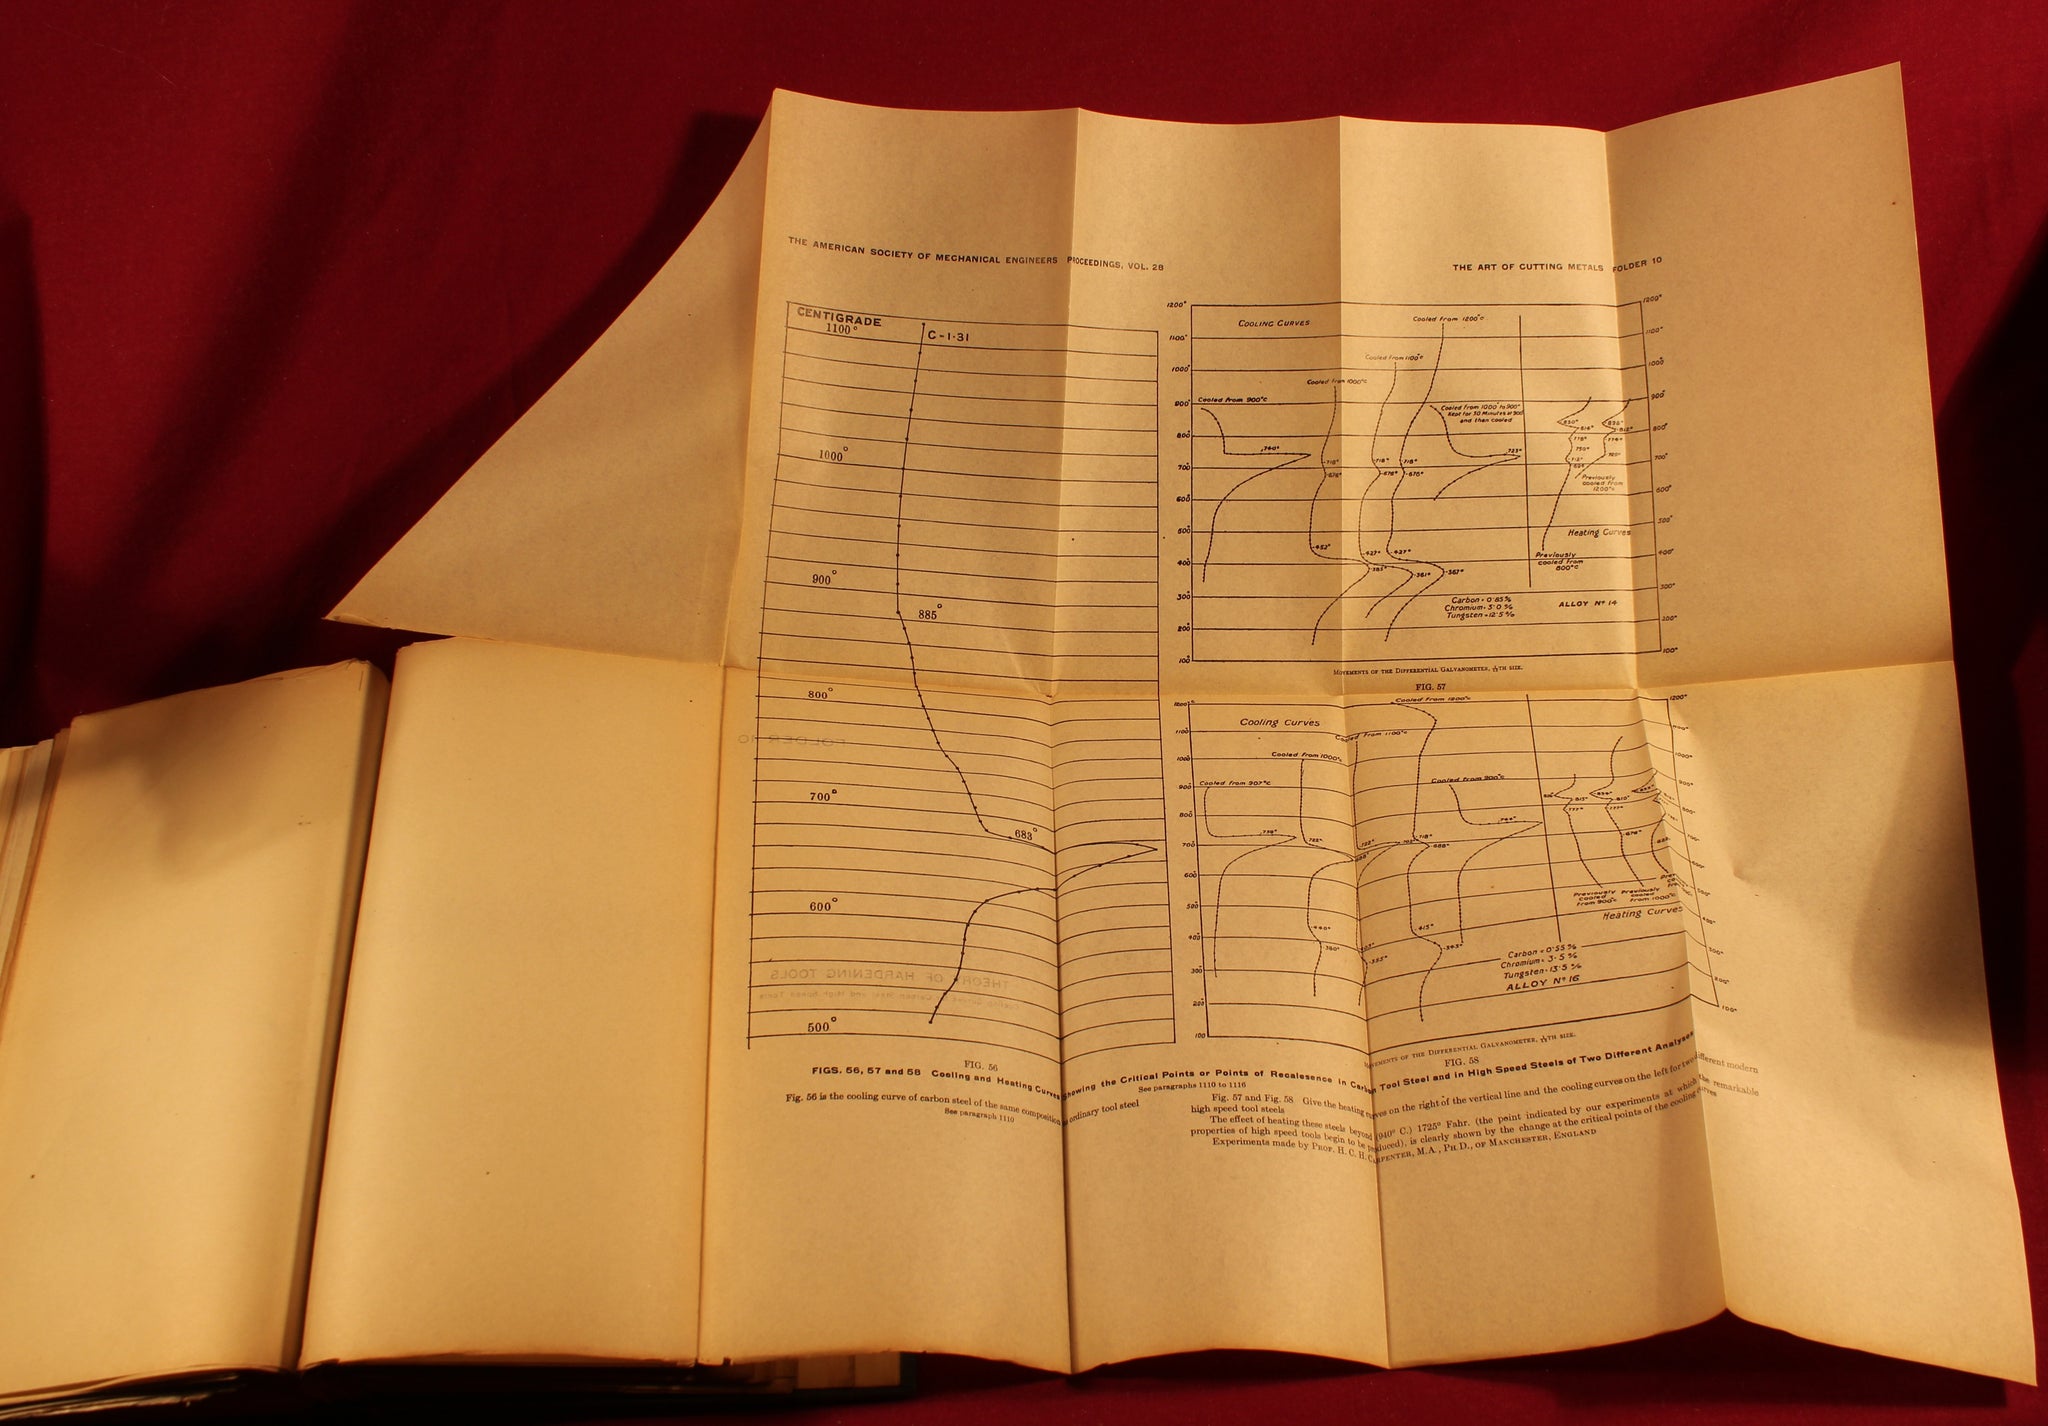 THE AMERICAN SOCIETY OF MECHANICAL ENGINEERS PROCEEDINGS, VOL. 28
THE ART OF CUTTING METALS FOLDER 10
CENTIGRADE
1100°
C-1·31
1000°
900°
885°
800°
700°
683°
600°
500°
FIG. 56
1200°
1100°
1000°
900°
800°
700°
600
500
400
300
200
100
COOLING CURVES
Cooled from 900°C
740°
Cooled from 1000°C
718°
676°
452°
385°
Cooled from 1100°C
718°
676°
427°
361°
Cooled from 1200°C
718°
676°
427°
367°
Cooled from 1000° to 900°
Kept for 30 Minutes at 900
and then cooled
723°
830°
814°
778°
750°
712°
812°
774°
Previously
cooled from
1200°C
Heating Curves
Previously
cooled from
800°C
Carbon = 0·85%
Chromium = 3·0%
Tungsten = 12·5%
ALLOY Nº 14
1200°
1100°
1000°
900°
800°
700°
600°
500°
400°
300°
200°
100°
MOVEMENTS OF THE DIFFERENTIAL GALVANOMETER, 1/10TH SIZE.
FIG. 57
1100°
1000°
900°
800°
700°
600
500
400
300
200
100
Cooling Curves
Cooled from 907°C
Cooled from 1000°C
Cooled from 1100°C
Cooled from 1200°C
Cooled from 900°C
722°
440°
380°
355°
718°
688°
415°
345°
777°
777°
Previously
cooled
from 900°C
Previously
cooled
from 1000°C
Heating Curves
Carbon = 0·55%
Chromium = 3·5%
Tungsten = 13·5%
ALLOY Nº 16
1200°
1000°
900°
800°
700°
400°
300°
200°
100°
MOVEMENTS OF THE DIFFERENTIAL GALVANOMETER, 1/10TH SIZE.
FIG. 58
FIGS. 56, 57 and 58 Cooling and Heating Curves Showing the Critical Points or Points of Recalesence in Carbon Tool Steel and in High Speed Steels of Two Different Analyses
See paragraphs 1110 to 1116
Fig. 56 is the cooling curve of carbon steel of the same composition as ordinary tool steel
See paragraph 1110
Fig. 57 and Fig. 58 Give the heating curves on the right of the vertical line and the cooling curves on the left for two different modern
high speed tool steels
The effect of heating these steels beyond (940° C.) 1725° Fahr. (the point indicated by our experiments at which the remarkable
properties of high speed tools begin to be produced), is clearly shown by the change at the critical points of the cooling curves
Experiments made by PROF. H. C. H. CARPENTER, M.A., PH.D., OF MANCHESTER, ENGLAND
FOLDER 10
THEORY OF HARDENING TOOLS